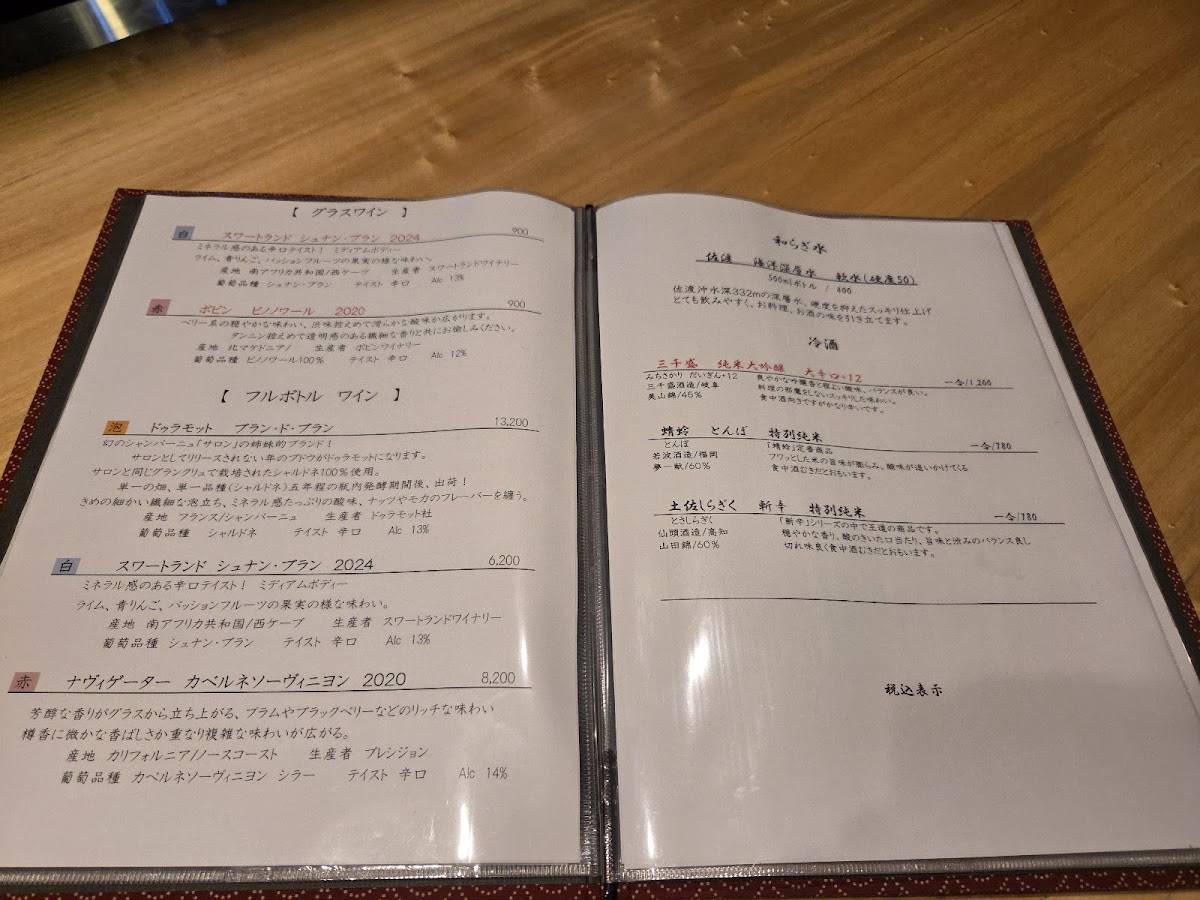 【 グラスワイン 】
白 スワートランド シュナン・ブラン 2024 900
ミネラル感のある辛口テイスト! ミディアムボディー
ライム、青りんご、パッションフルーツの果実の様な味わい
産地 南アフリカ共和国/西ケープ 生産者 スワートランドワイナリー
葡萄品種 シュナン・ブラン テイスト 辛口 Alc 13%
赤 ポピン ピノノワール 2020 900
ベリー系の穏やかな味わい、渋味控えめで滑らかな酸味が広がります。
タンニン控えめで透明感のある繊細な香りと共にお愉しみください。
産地 北マケドニア/ 生産者 ポピンワイナリー
葡萄品種 ピノノワール100% テイスト 辛口 Alc 12%
【 フルボトル ワイン 】
泡 ドゥラモット ブラン・ド・ブラン 13,200
幻のシャンパーニュ「サロン」の姉妹的ブランド!
サロンとしてリリースされない年のブドウがドゥラモットになります。
サロンと同じグランクリュで栽培されたシャルドネ100%使用。
単一の畑、単一品種(シャルドネ)五年程の瓶内発酵期間後、出荷!
きめの細かい繊細な泡立ち、ミネラル感たっぷりの酸味、ナッツやモカのフレーバーを纏う。
産地 フランス/シャンパーニュ 生産者 ドゥラモット社
葡萄品種 シャルドネ テイスト 辛口 Alc 13%
白 スワートランド シュナン・ブラン 2024 6,200
ミネラル感のある辛口テイスト! ミディアムボディー
ライム、青りんご、パッションフルーツの果実の様な味わい。
産地 南アフリカ共和国/西ケープ 生産者 スワートランドワイナリー
葡萄品種 シュナン・ブラン テイスト 辛口 Alc 13%
赤 ナヴィゲーター カベルネソーヴィニヨン 2020 8,200
芳醇な香りがグラスから立ち上がる、プラムやブラックベリーなどのリッチな味わい
樽香に微かな香ばしさか重なり複雑な味わいが広がる。
産地 カリフォルニア/ノースコースト 生産者 プレシジョン
葡萄品種 カベルネソーヴィニヨン シラー テイスト 辛口 Alc 14%
和らぎ水
佐渡 海洋深層水 軟水(硬度50)
500mlボトル / 800
佐渡沖水深332mの深層水、硬度を抑えたスッキリ仕上げ
とても飲みやすく、お料理、お酒の味を引き立てます。
冷酒
三千盛 純米大吟醸 大辛口+12 一合/1,200
みちさかり だいぎん+12 爽やかな吟醸香と程よい酸味、バランスが良い。
三千盛酒造/岐阜 料理の邪魔をしないスッキリした味わい。
美山錦/45% 食中酒向きですがかなり辛いです。
蜻蛉 とんぼ 特別純米 一合/780
とんぼ 「蜻蛉」定番商品
若波酒造/福岡 フワッとした米の旨味が膨らみ、酸味が追いかけてくる
夢一献/60% 食中酒むきだとおもいます。
土佐しらぎく 斬辛 特別純米 一合/780
とさしらぎく 「斬辛」シリーズの中で王道の商品です。
仙頭酒造/高知 穏やかな香り、酸のきいた口当たり、旨味と渋みのバランス良し
山田錦/60% 切れ味良く食中酒むきだとおもいます。
税込表示